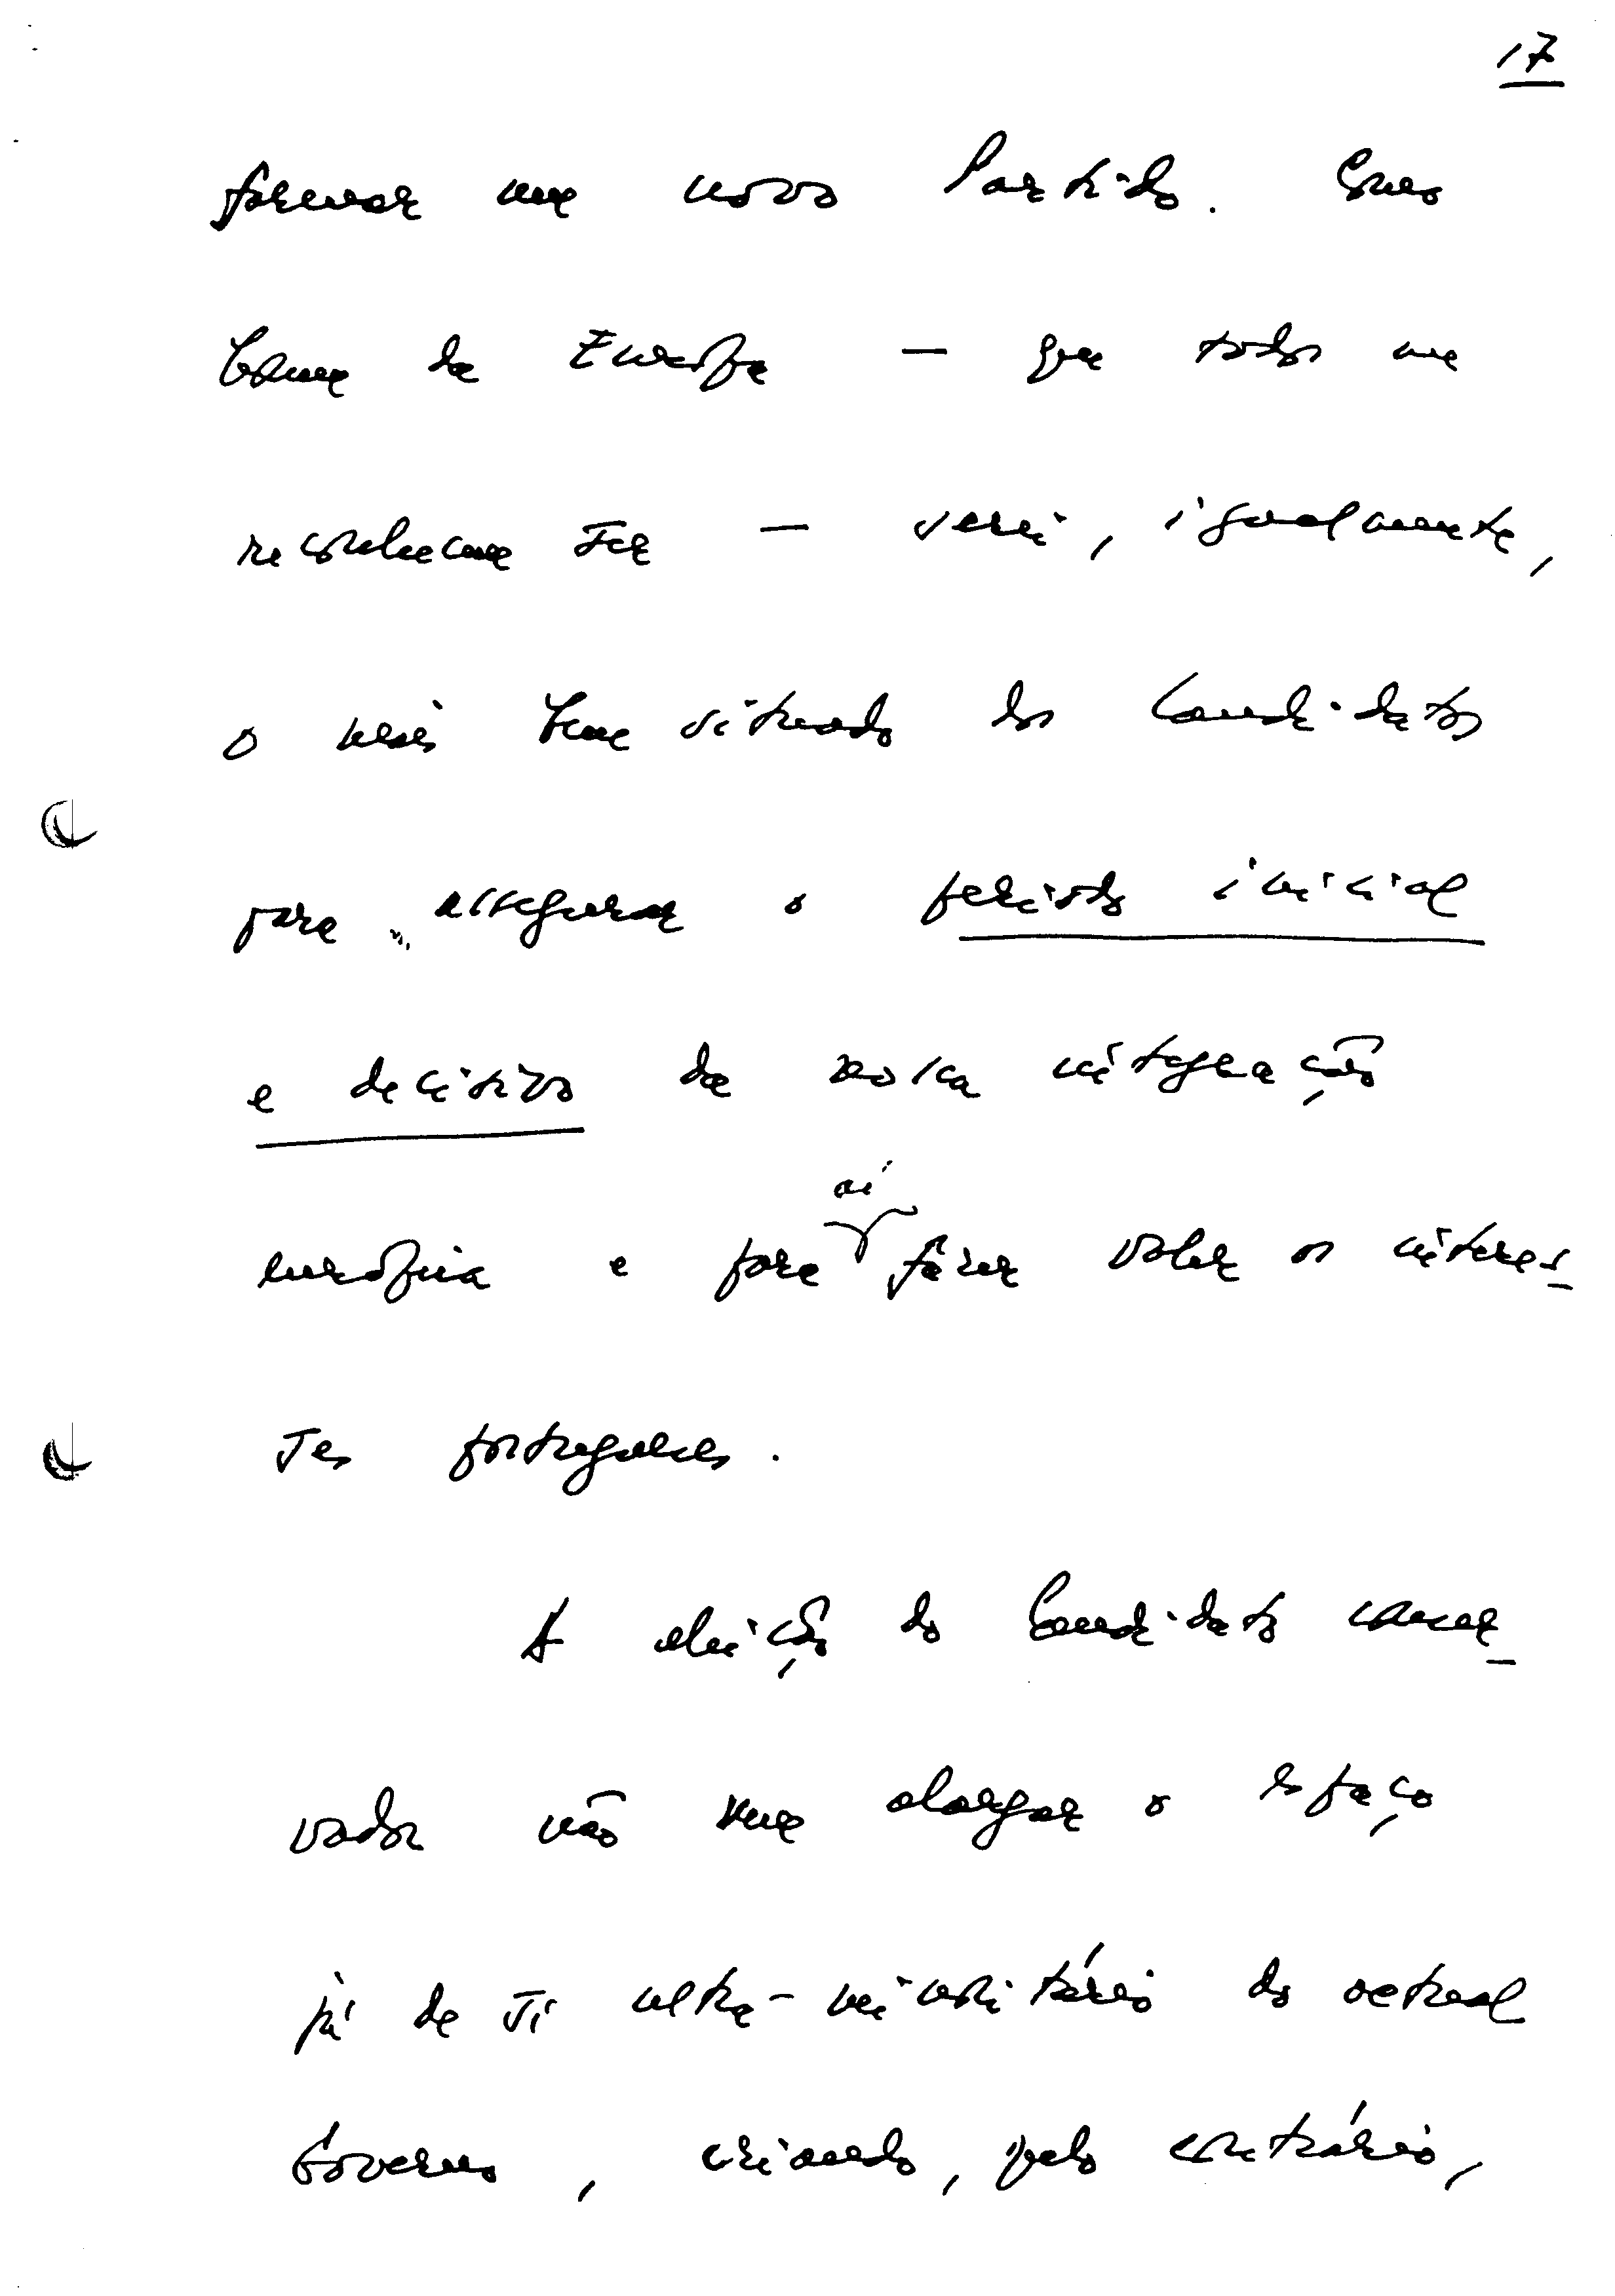 17
formar um novo Partido. Como
homem da Europa — que todos me
reconhecem ser — serei, igualmente,
o mais bem situado dos Candidatos
para assegurar o período inicial
e decisivo da nossa integração
aí
europeia e para fazer valer os interes-
ses portugueses.
A eleição do Candidato conser-
vador não vem alargar o espaço
já de si ultra-minoritário do actual
Governo, criando, pelo contrário,